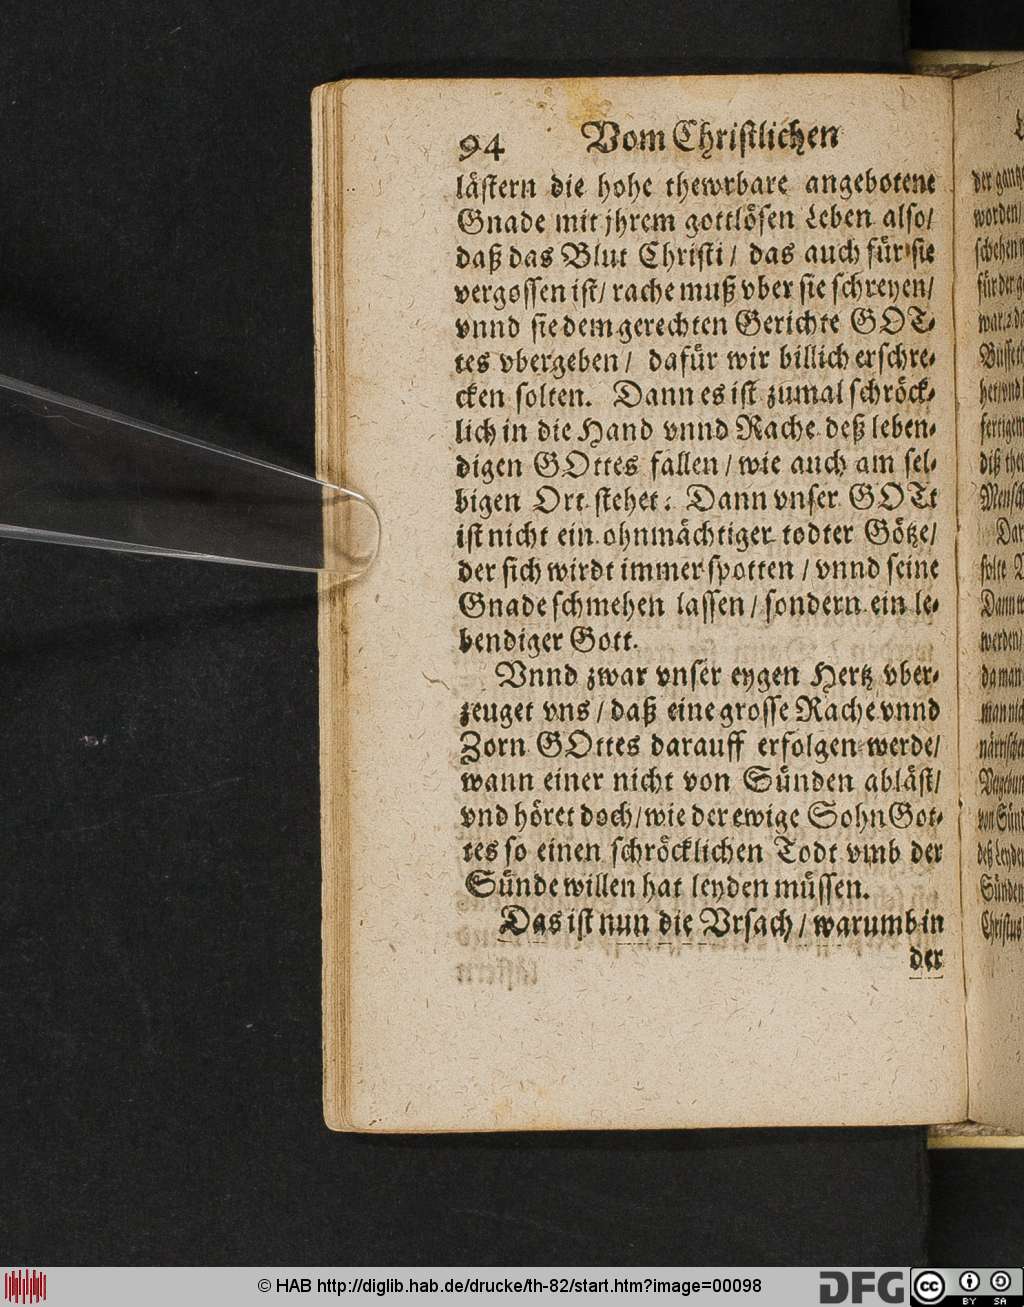 94 Vom Christlichen
lästern die hohe thewrbare angebotene
Gnade mit jhrem gottlösen Leben also/
daß das Blut Christi / das auch für sie
vergossen ist/ rache muß vber sie schreyen/
vnnd sie dem gerechten Gerichte GOT-
tes vbergeben / dafür wir billich erschre-
cken solten. Dann es ist zumal schröck-
lich in die Hand vnnd Rache deß leben-
digen GOttes fallen / wie auch am sel-
bigen Ort stehet: Dann vnser GOTt
ist nicht ein ohnmächtiger todter Götze/
der sich wirdt immer spotten / vnnd seine
Gnade schmehen lassen / sondern ein le-
bendiger Gott.
Vnnd zwar vnser eygen Hertz vber-
zeuget vns / daß eine grosse Rache vnnd
Zorn GOttes darauff erfolgen werde/
wann einer nicht von Sünden abläst/
vnd höret doch/ wie der ewige Sohn Got-
tes so einen schröcklichen Todt vmb der
Sünde willen hat leyden müssen.
Das ist nun die Vrsach / warumb in
der
worden/
für der
Büsset
fertigem
Mensch
Dar
solte
werden/
da man
von Sünd
Sünden
Christus
© HAB http://diglib.hab.de/drucke/th-82/start.htm?image=00098
DFG
cc BY SA